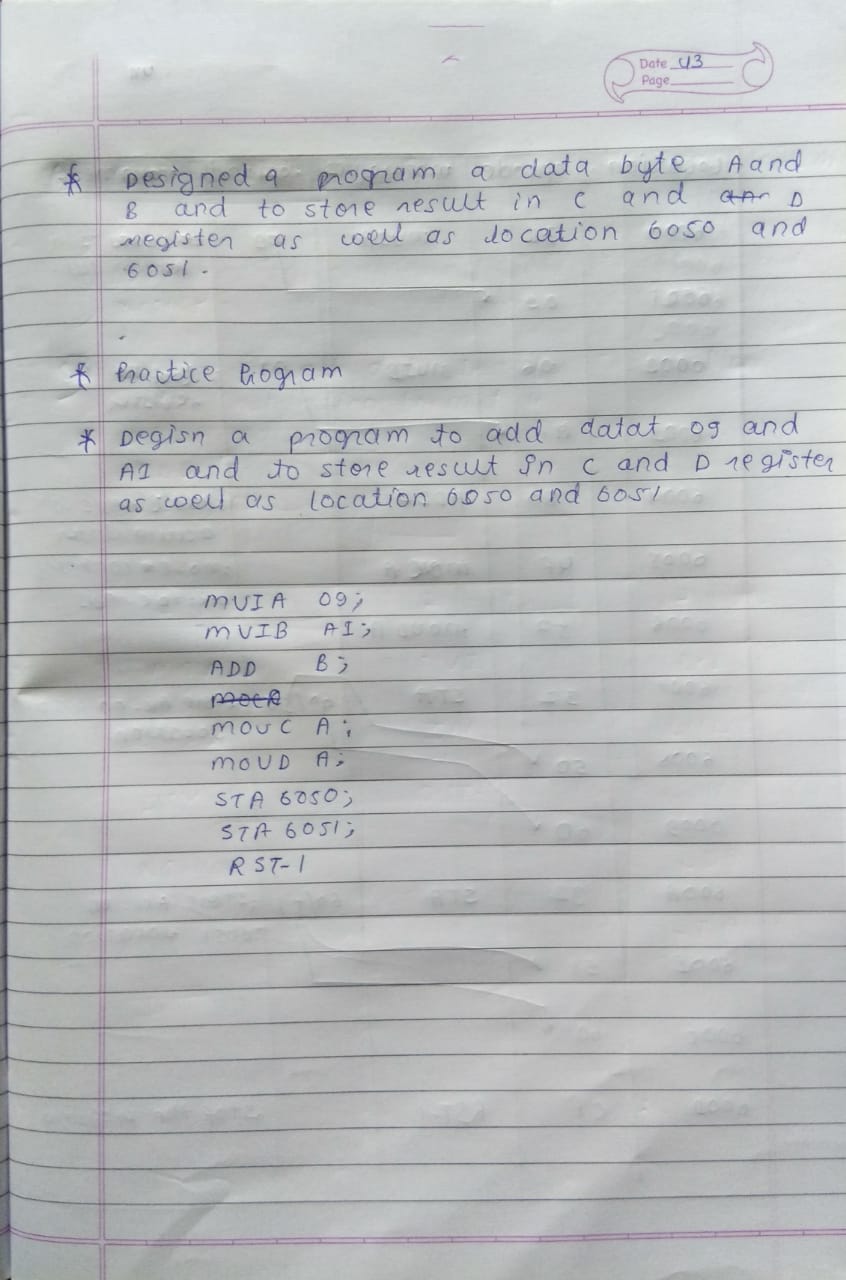 Date 43
Page
* Designed a program a data byte A and
B and to store result in C and D
register as well as location 6050 and
6051.
* Practice Program
* Degisn a program to add datat 09 and
AI and to store result in C and D register
as well as location 6050 and 6051
MVIA 09;
MVIB AI;
ADD B;
MOVC A;
MOVD A;
STA 6050;
STA 6051;
RST-1